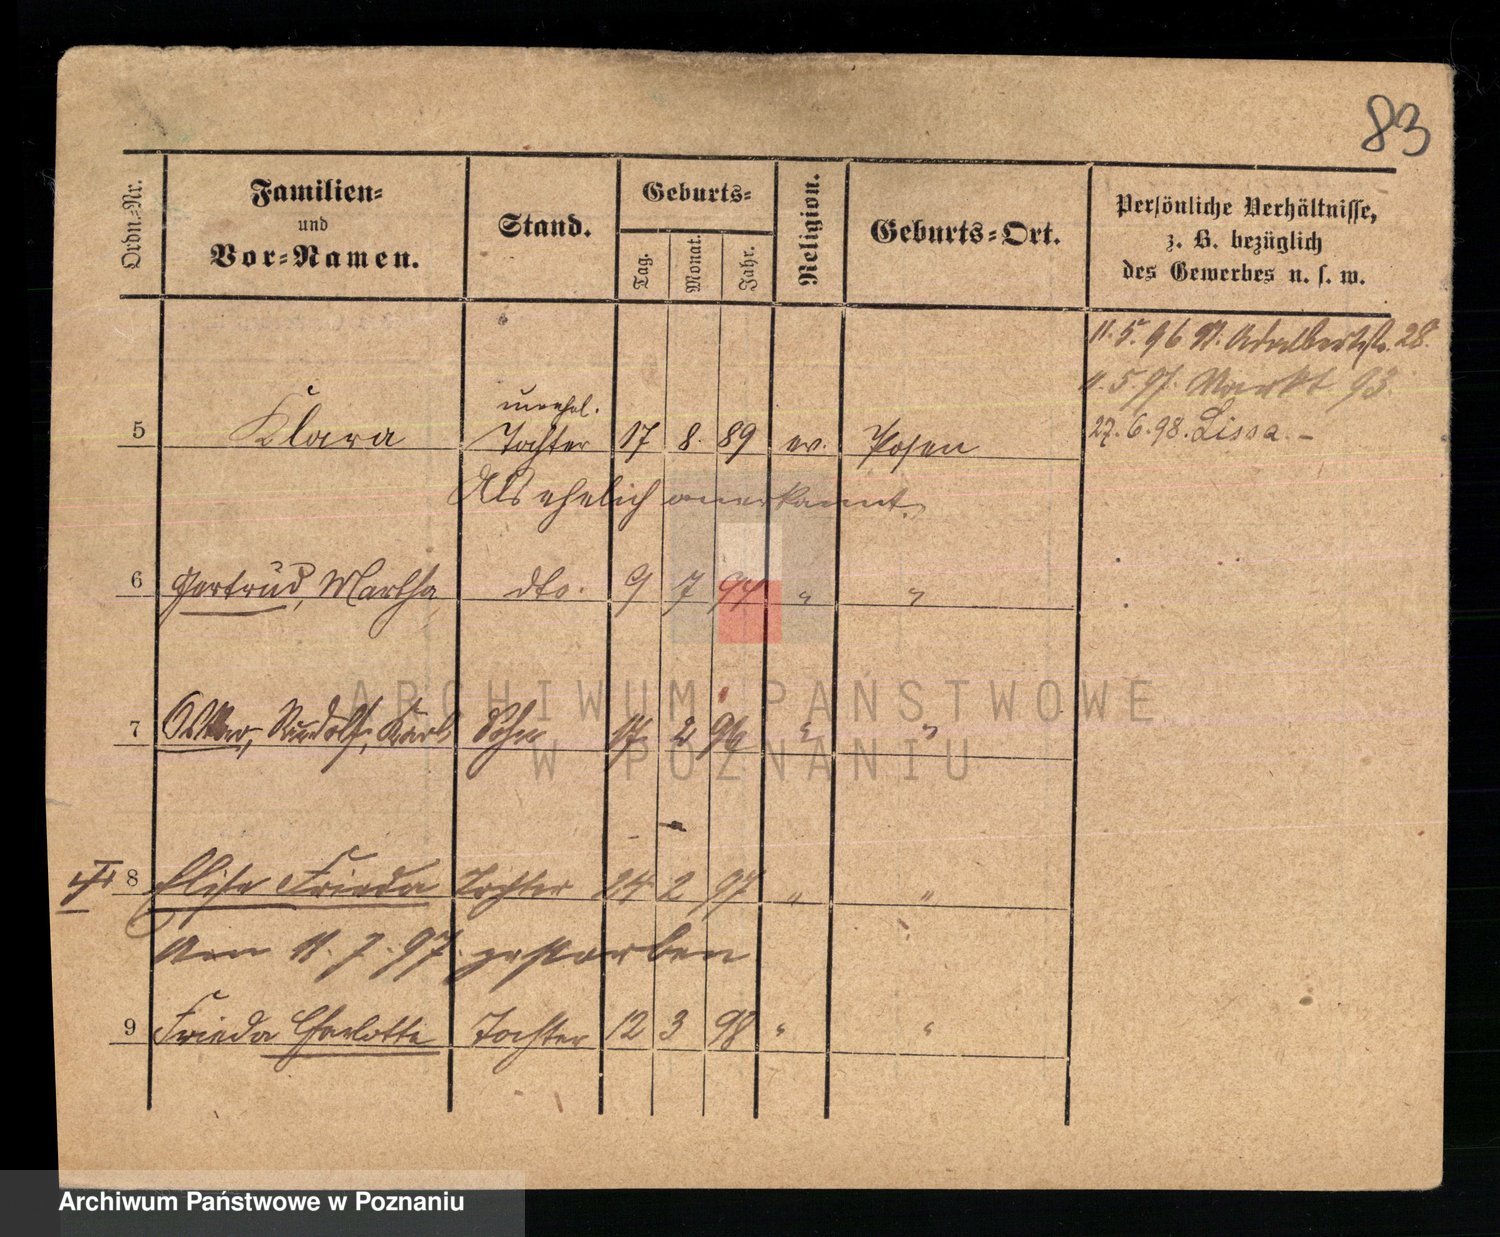 83
Ordn.-Nr.
Familien-
und
Vor-Namen.
Stand.
Geburts-
Tag.
Monat.
Jahr.
Religion.
Geburts-Ort.
Persönliche Verhältnisse,
z. B. bezüglich
des Gewerbes u. s. w.
11. 5. 96 St. Adalbertstr. 28.
11. 5. 97. Markt 93.
27. 6. 98. Lissa. –
unehel.
5 Klara Tochter 17 8. 89 ev. Posen
Als ehelich anerkannt.
6 Gertrud, Martha dto. 9 7 94 " "
7 Rudolf, Karl Sohn 17. 2 96 " "
8 Elise Frieda Tochter 24 2 97 " "
Am 11. 7. 97. gestorben
9 Frieda Charlotte Tochter 12 3 98 " "
ARCHIWUM PAŃSTWOWE
W POZNANIU
Archiwum Państwowe w Poznaniu